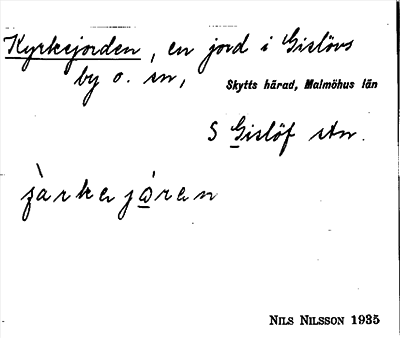 Kyrkejorden, en jord i Gislövs
by o. sn,
Skytts härad, Malmöhus län
S Gislöf stn.
NILS NILSSON 1935